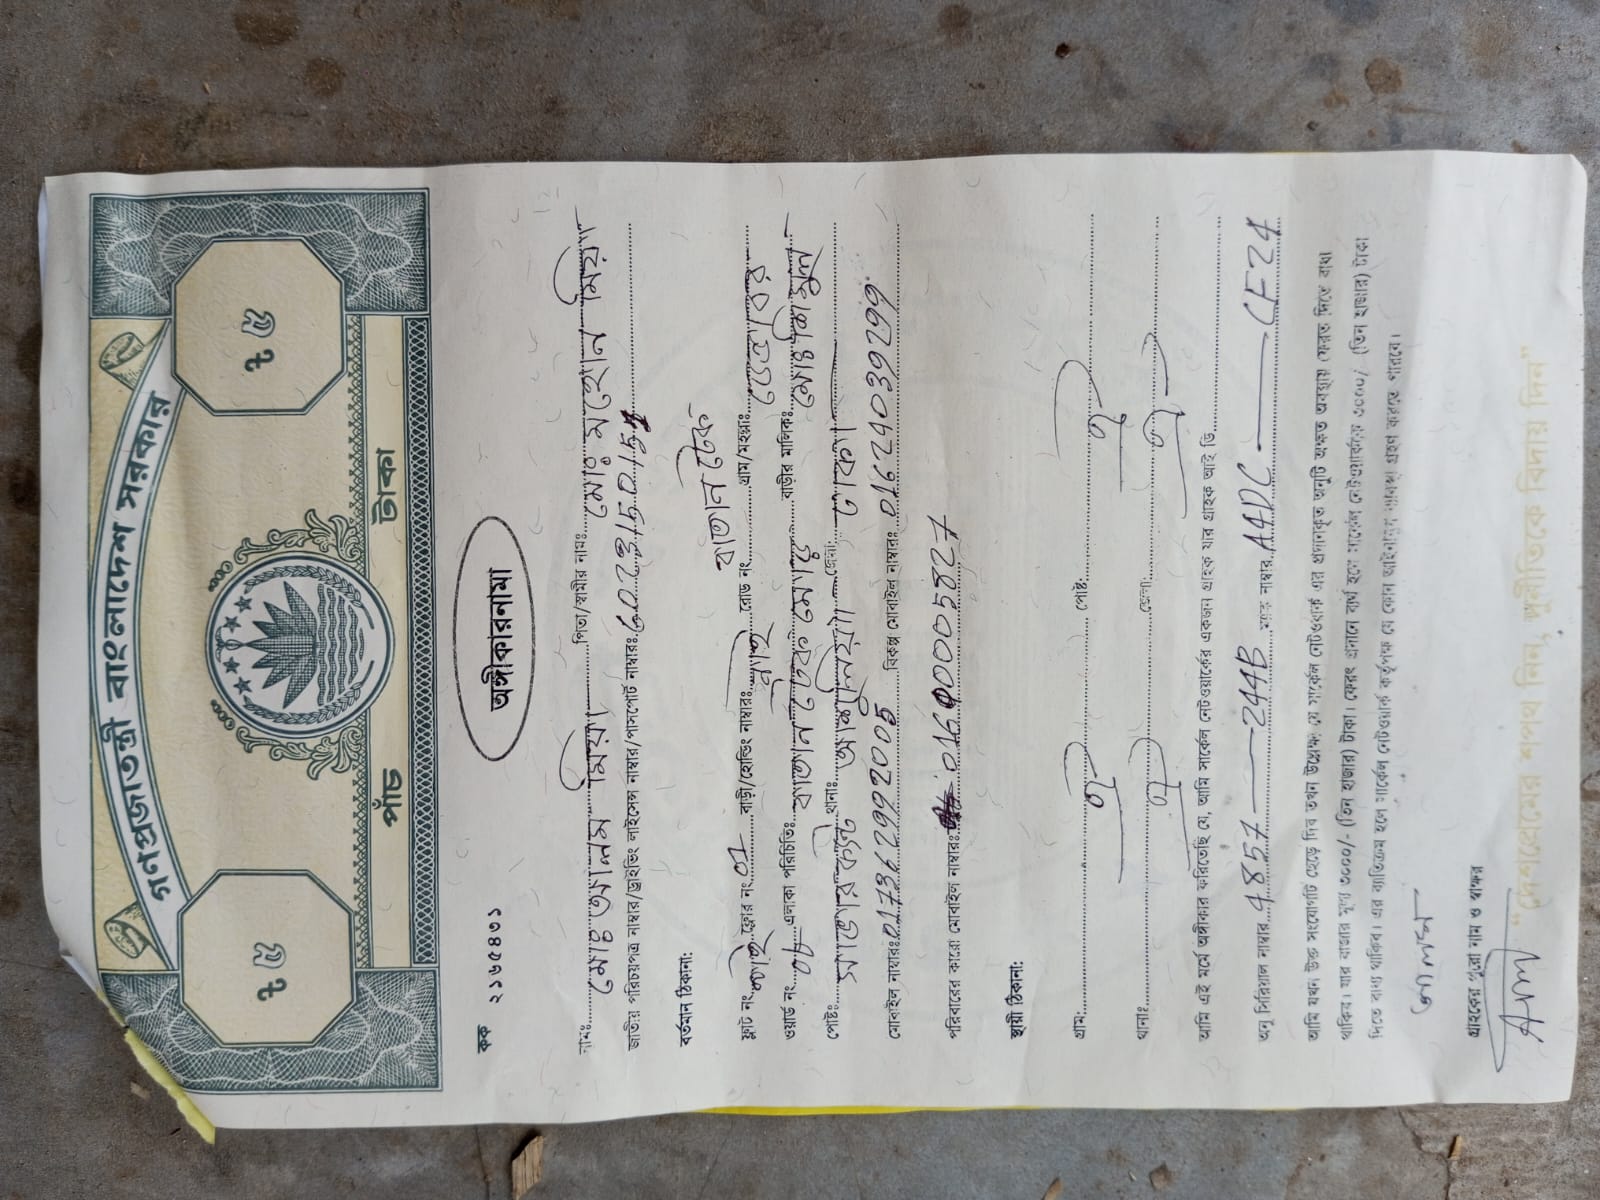 গণপ্রজাতন্ত্রী বাংলাদেশ সরকার
৳ ৫
৳ ৫
পাঁচ টাকা
কক ২১৬৫৪৩১
অঙ্গীকারনামা
নাম: মোঃ আলম মিয়া পিতা/স্বামীর নাম: মোঃ সুহোন মিয়া
জাতীয় পরিচয়পত্র নাম্বার/ড্রাইভিং লাইসেন্স নাম্বার/পাসপোর্ট নাম্বার:
বর্তমান ঠিকানা:
বাতান টেক
ফ্লাট নং নাই ফ্লোর নং 01 বাড়ী/হোল্ডিং নাম্বার: নাই রোড নং গ্রাম/মহল্লা:
ওয়ার্ড নং এলাকা পরিচিতি: বাতান টেক মোড় বাড়ীর মালিক:
পোষ্ট: সাভার ক্যান্ট থানা: আশুলিয়া জেলা: ঢাকা
মোবাইল নাম্বার: 017362992005 বিকল্প মোবাইল নাম্বার: 01624039299
পরিবারের কারো মোবাইল নাম্বার: 01600005827
স্থায়ী ঠিকানা:
গ্রাম: ঐ পোষ্ট: ঐ
থানা: ঐ জেলা: ঐ
আমি এই মর্মে অঙ্গীকার করিতেছি যে, আমি সার্কেল নেটওয়ার্কের একজন গ্রাহক যার গ্রাহক আই ডি
অনু সিরিয়াল নাম্বার 4857 — 244B ম্যাক নাম্বার A4DC — CF24
আমি যখন উক্ত সংযোগটি ছেড়ে দিব তখন উল্লেক্ষ্য যে সার্কেল নেটওয়ার্ক এর প্রদানকৃত অনুটি অক্ষত অবস্থায় ফেরত দিতে বাধ্য
থাকিব। যার বাজার মূল্য ৩০০০/- (তিন হাজার) টাকা। ফেরৎ প্রদানে ব্যর্থ হলে সার্কেল নেটওয়ার্ককে ৩০০০/ (তিন হাজার) টাকা
দিতে বাধ্য থাকিব। এর ব্যতিক্রম হলে সার্কেল নেটওয়ার্ক কর্তৃপক্ষ যে কোন আইনানুগ ব্যবস্থা গ্রহণ করতে পারবে।
আলম
গ্রাহকের পুরো নাম ও স্বাক্ষর
“দেশপ্রেমের শপথ নিন, দুর্নীতিকে বিদায় দিন”